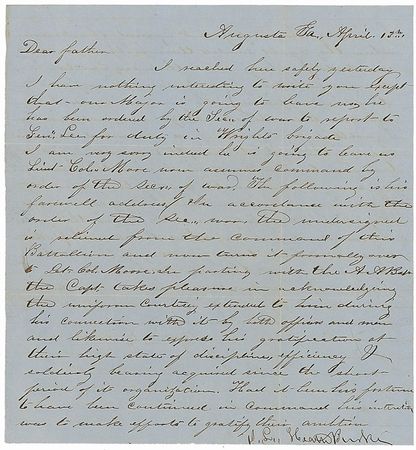 Augusta Ga, April 13th
Dear father
I reached here safely yesterday
I have nothing interesting to write you except
that our Major is going to leave us, he
has been ordered by the Sec of war to report to
Gen. Lee for duty in Wright's brigade
I am very sorry indeed he is going to leave us
Lieut Col. Moore now assumes command by
order of the Secr. of war The following is his
farewell address, In accordance with the
order of the Sec. war. The undersigned
is relieved from the command of this
Battalion and now turns it formally over
to Lt. Col. Moore. In parting with the A. A Batt
the Capt takes pleasure in acknowledging
the uniform courtesy extended to him during
his connection with it by both officers and men
and likewise to express his gratification at
their high state of discipline, efficiency &
soldierly bearing acquired since the short
period of its organization. Had it been his fortune
to have been continued in command his intention
was to make efforts to gratify their ambition